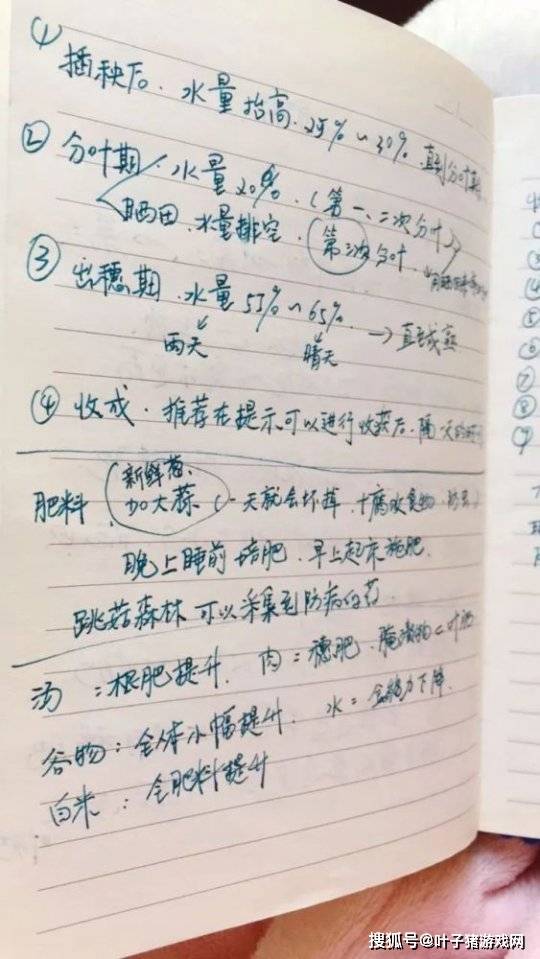 ① 插秧后. 水量抬高. 25% ~ 30%. 直到分叶期
② 分叶期 水量20%. (第一、二次分叶)
晒田. 水量排空. 第三次分叶.
③ 出穗期. 水量55% ~ 65%. → 直至成熟
雨天 晴天
④ 收成. 推荐在提示可以进行收获后. 隔一天的
肥料 新鲜葱、加大蒜 (一天就会坏掉. +腐败食物.
晚上睡前培肥. 早上起床施肥.
跳菇森林可以采集到防病的药.
汤:根肥提升. 肉:穗肥. 腌渍物<叶肥
谷物:全体小幅提升. 水:全能力下降.
白米:全肥料提升
①
②
③
④
⑤
⑥
⑦
⑧
⑨
搜狐号@叶子猪游戏网